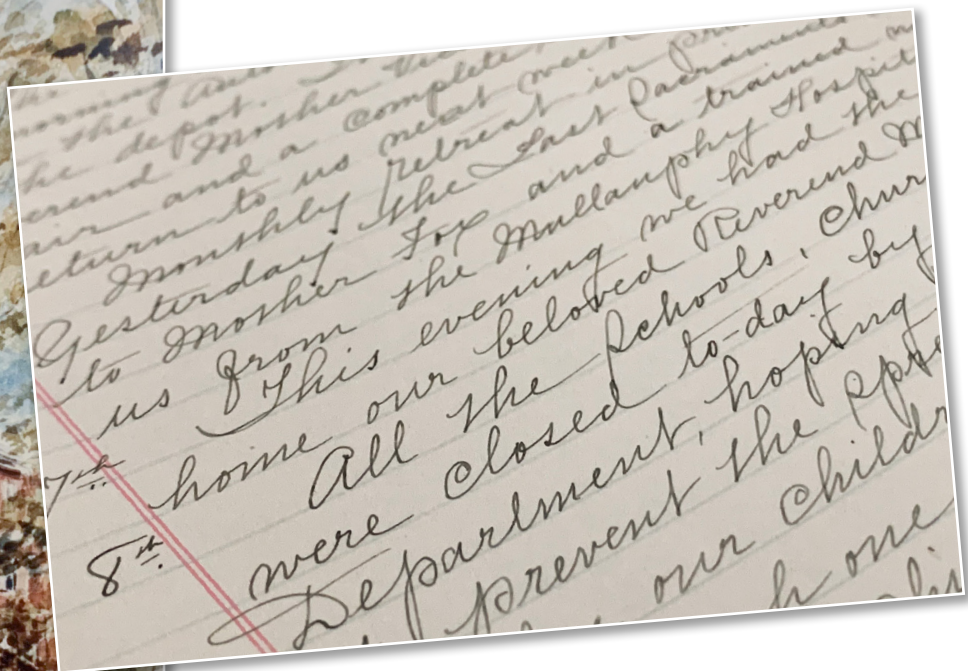 the depot.
erend Mother
air and a complete
eturn to us next week
Monthly retreat in
Yesterday the Last Sacraments
to Mother Fox and a trained
us from the Mullanphy Hospit
This evening we had the
7th home our beloved Reverend M
8th All the schools, Chur
were closed to-day by
Department, hoping
prevent the spre
our childr
h one